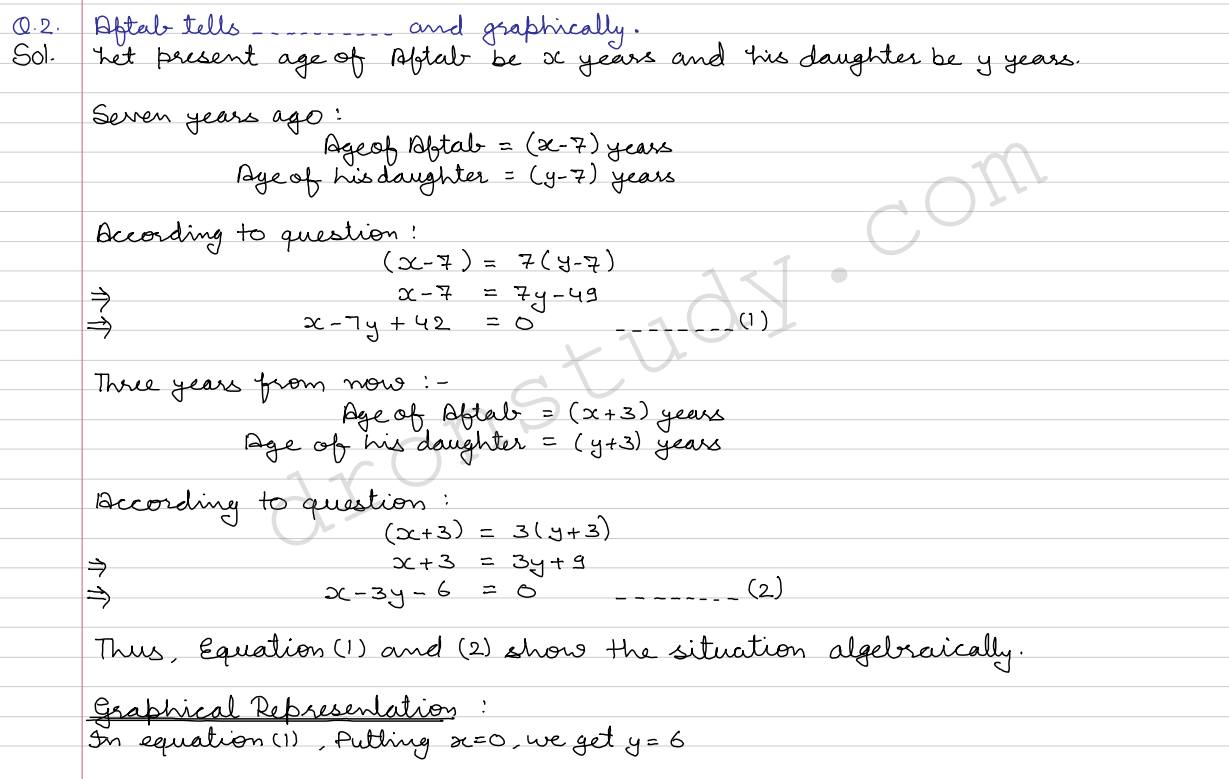 Q.2. Aftab tells ---------- and graphically.
Sol. Let present age of Aftab be x years and his daughter be y years.
Seven years ago :
Age of Aftab = (x-7) years
Age of his daughter = (y-7) years
According to question :
(x-7) = 7(y-7)
⇒ x-7 = 7y-49
⇒ x-7y+42 = 0 --------(1)
Three years from now :-
Age of Aftab = (x+3) years
Age of his daughter = (y+3) years
According to question :
(x+3) = 3(y+3)
⇒ x+3 = 3y+9
⇒ x-3y-6 = 0 --------(2)
Thus, Equation (1) and (2) show the situation algebraically.
Graphical Representation :
In equation (1), Putting x=0, we get y=6
dronstudy.com